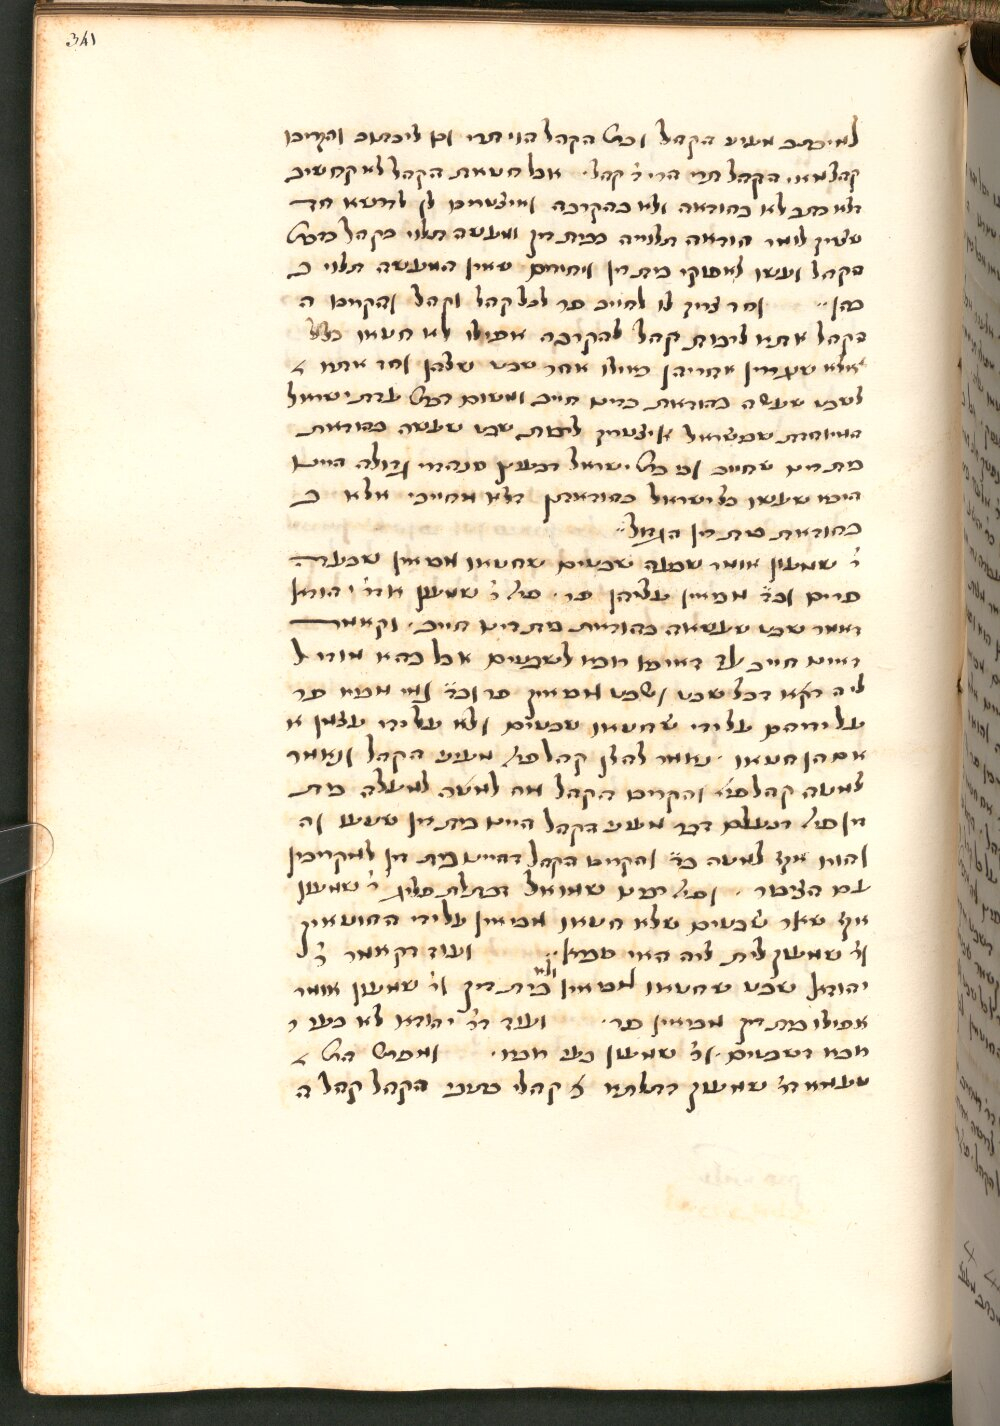 341
למיכתב מעיני הקהל ומש' הקהל הוי תרי וא' ליכתוב והקריבו
קהל מאי הקהל תרי הרי ד' קהל. אבל חטאת הקהל לא קחשיב
דלא כתב לא בהוראה ולא בהקרבה ואיצטריכו לן לדרשא חד
שצריך לומר הוראה תלוייה בבית דין ומעשה תלוי בקהל כדמש'
הקהל ועשו לאפוקי בית דין וחדהם שאין המעשה תלוי ב
בהן וחד צריך לו לחייב פר לכל קהל וקהל והקריבו ה
הקהל אתא לרבות קהל להקרבה אפילו לא חטאו כלל
אלא שגררין אחריהן כאילו אחר שבט שלהן וחד אתא ל
לשבט שעשה בהוראת ב"ד חייב ומשום דמש' עדת ישראל
המיוחדת שבישראל איצטריך לרבות שבט שעשה בהוראת
בית דינו שחייב ואם כל ישראל דבעינן סנהדרי גדולה היינו
היכא שעשו כל ישראל בהוראתן דלא מחייבי אלא ב
בהוראת בית דין הגדול
ר' שמעון אומר שבעה שבטים שחטאו מביאין שבעה
פרים וכו' מביאין עליהן פר. פי' ר' שמעון אדר' יהודא
דאמר שבט שעשאה בהוראת בית דינו חייב. וקאמר
דאינו חייב עד דאיכא רובא לשבטים אבל בהא מודי ל
ליה דקא דכל שבט ושבט מביאין פר וכו' ואי אמא פר
על ידיהם על ידי שחטאו שבטים ולא על ידי עצמן א
אם הן חטאו. נאמר להלן קהל פי' מעיני הקהל ונאמר
למטה קהל פי' והקריבו הקהל מה למטה למעלה בית
דין פי' דנעלם דבר מעיני הקהל היינו בית דין שעשו וה
והוו אף למטה כו' והקריבו הקהל דהיינו בית דין למקריבין
עם הצבור. ופי' רבינו שמואל דכולה סליק ר' שמעון
אף שאר שבטים שלא חטאו מביאין על ידי החוטאין
ור' שמעון לית ליה האי סברא. ועוד דקאמר ר'
יהודא שבט שחטאו מביאין ולא בית דין ור' שמעון אומר
אפילו בית דין מביאין פר. ועוד דר' יהודא לא בעי ר
רובא דשבטים. ור' שמעון בעי רובא. ומפרש דהש' ל
טעמא דר' שמעון דכולהו ג' קהלי כתיבי הקהל קהל ה